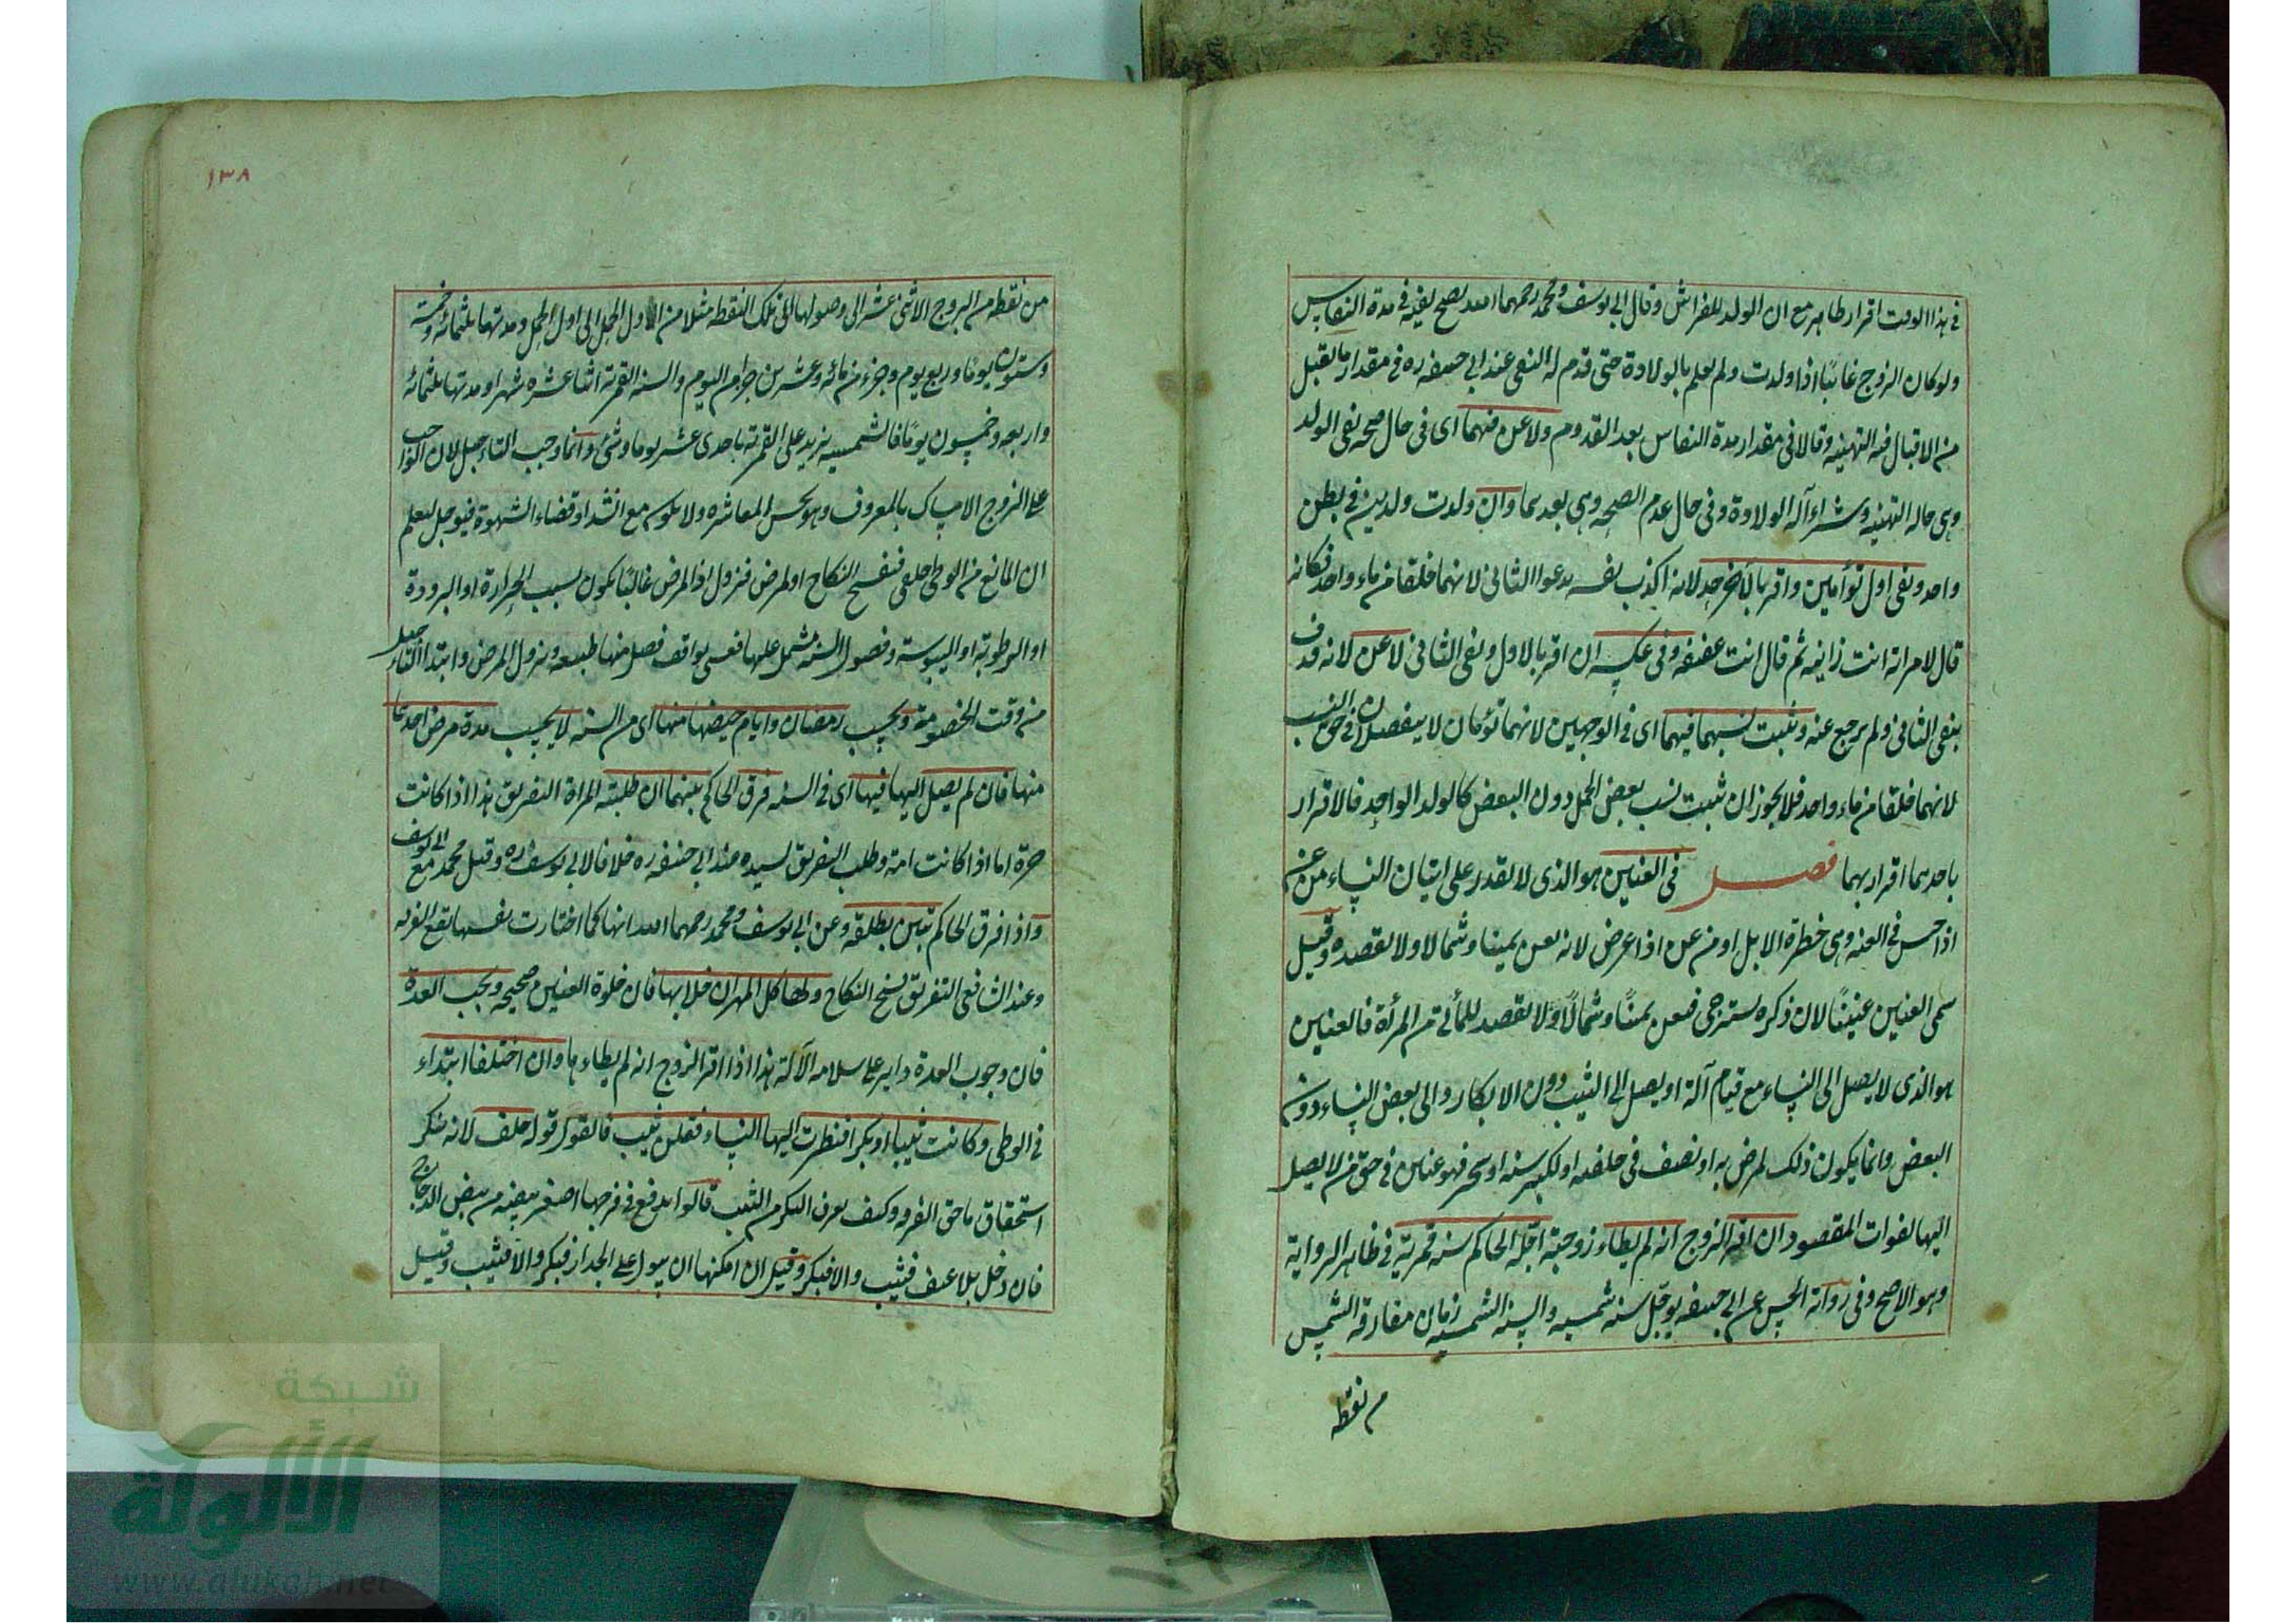 فى هذا الوقت اقرار ظاهر مع ان الولد للفراش وقال ابى يوسف ومحمد رحمهما الله يصح نفيه فى مدة النفاس
ولو كان الزوج غائبا اذا ولدت ولم يعلم بالولادة حتى قدم له النفى عند ابى حنيفه ره فى مقدار ما تقبل
من الاقبال فيه التهنيه وقالا فى مقدار مدة النفاس بعد القدوم ولاعن فيهما اى فى حال صحه نفى الولد
وهى حاله التهنيه وشراء آلة الولادة وفى حال عدم الصحه وهى بعدهما وان ولدت ولدين فى بطن
واحد ونفى اول توأمين واقر بالآخر حد لانه اكذب نفسه بدعوا الثانى لانهما خلقا من ماء واحد فكانه
قال لامراته انت زانيه ثم قال انت عفيفه وفى عكسه ان اقر بالاول ونفى الثانى لاعن لانه قذف
بنفى الثانى ولم يرجع عنه ويثبت نسبهما فيهما اى فى الوجهين لانهما توٴمان لا ينفصلان فى حق النسب
لانهما خلقا من ماء واحد فلا يجوز ان يثبت نسب بعض الحمل دون البعض كالولد الواحد فالاقرار
باحدهما اقرار بهما فصل فى العنين هو الذى لا يقدر على اتيان النساء من عن
اذا حبس فى العنه وهى حظرة الابل او من عن اذا عرض لانه يعن يمينا وشمالا ولا يقصده وقيل
سمى العنين عنينا لان ذكره يسترخى فيعن يمينا وشمالا ولا يقصد للمأتى من المرأة فالعنين
هو الذى لا يصل الى النساء مع قيام آلة او يصل الى الثيب دون الابكار والى بعض النساء دون
البعض وانما يكون ذلك لمرض به او لضعف فى خلقته او لكبر سنه او سحر فهو عنين فى حق من لا يصل
اليها لفوات المقصود ان اقر الزوج انه لم يطاء زوجته اجله الحاكم سنة قمرية فى ظاهر الرواية
وهو الاصح وفى رواية الحسن عن ابى حنيفه يوجل سنه شمسيه والسنه الشمسيه زمان مفارقة الشمس
من نقطه
١٣٨
من نقطه من البروج الاثنى عشر الى وصولها الى تلك النقطه مثلا من اول الحمل الى اول الحمل ومدتها ثلثمائه وخمسة
وستون يوما وربع يوم وجزء من مائه وعشرين جزا من اليوم والسنه القمرية اثنا عشره شهرا ومدتها ثلثمائه
واربعه وخمسون يوما فالشمسيه يزيد على القمرية باحدى عشر يوما وشئ وانما وجب التاجيل لان الواجب
على الزوج الامساك بالمعروف وهو حسن المعاشره ولا يكون مع انسداد قضاء الشهوة فيوجل ليعلم
ان المانع من الوطى خلقى فيفسخ النكاح او لمرض فيزول اذ المرض غالبا يكون بسبب الحرارة او البرودة
او الرطوبة او اليبوسة وفصول السنه يشتمل عليها فعسى يوافق فصل منها طبيعه ويزول المرض وابتدا التاجيل
من وقت الخصومة ويحسب رمضان وايام حيضها منها اى من السنه لا يحسب مدة مرض احدهما
منها فان لم يصل اليها فيها اى فى السنه فرق الحاكم بينهما ان طلبته المراة التفريق هذا اذا كانت
حرة اما اذا كانت امة وطلب التفريق لسيده عند ابى حنيفه ره خلافا لابى يوسف ره وقيل محمد مع ابى يوسف
واذا فرق الحاكم تبين بطلقة وعن ابى يوسف ومحمد رحمهما الله انها كما اختارت نفسها يقع الفرقه
وعند الشافعى التفريق بفسخ النكاح ولها كل المهر ان خلا بها فان خلوة العنين صحيحه ويجب العدة
فان وجوب العدة داير على سلامه الآلة هذا اذا اقر الزوج انه لم يطاءها وان اختلفا ابتداء
فى الوطى وكانت ثيبا او بكرا فنظرت اليها النساء فقلن ثيب فالقول قوله حلف لانه منكر
استحقاقها حق الفرقه وكيف يعرف البكر من الثيب قالوا يدفع فى فرجها اصغر بيضه من بيض الدجاج
فان دخل بلا عنف فثيب والا فبكر وقيل ان امكنها ان يبول على الجدار فبكر والا فثيب وقيل
شبكة
الألوكة
www.alukah.net